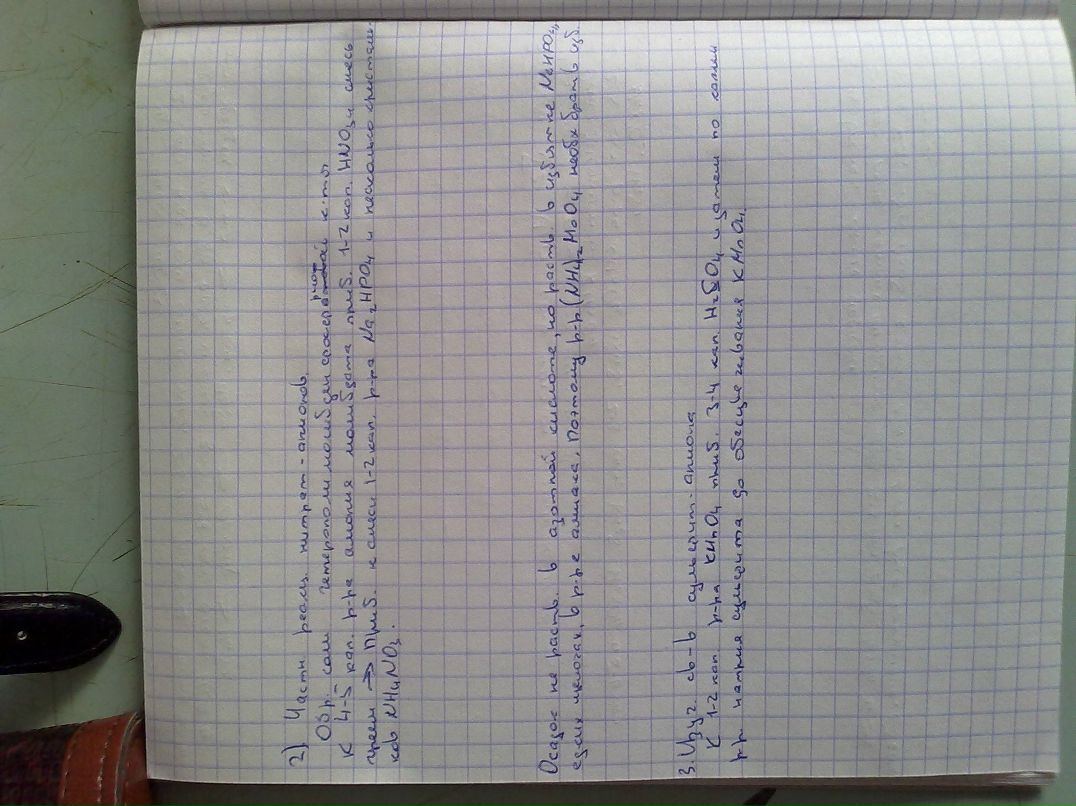 2) Частн. реакц. нитрат-анионов.
Обр. соли гетерополимолибден фосфорной к-ты
К 4-5 кап. р-ра амония молибдата приб. 1-2 кап. HNO3 и смесь
греем → Приб. к смеси 1-2 кап. р-ра Na2HPO4 и несколько кристалл
ков NH4NO3.
Осадок не раств. в азотной кислоте, но раств. в избытке Na2HPO4,
едких щелочах, в р-ре амиака. Поэтому р-р (NH4)2MoO4 необх брать изб.
3. Изуч. св-в сульфит-аниола
К 1-2 кап р-ра KMnO4 приб. 3-4 кап. H2SO4 и затем по капли
р-р натрия сульфита до обесцвечивания KMnO4.